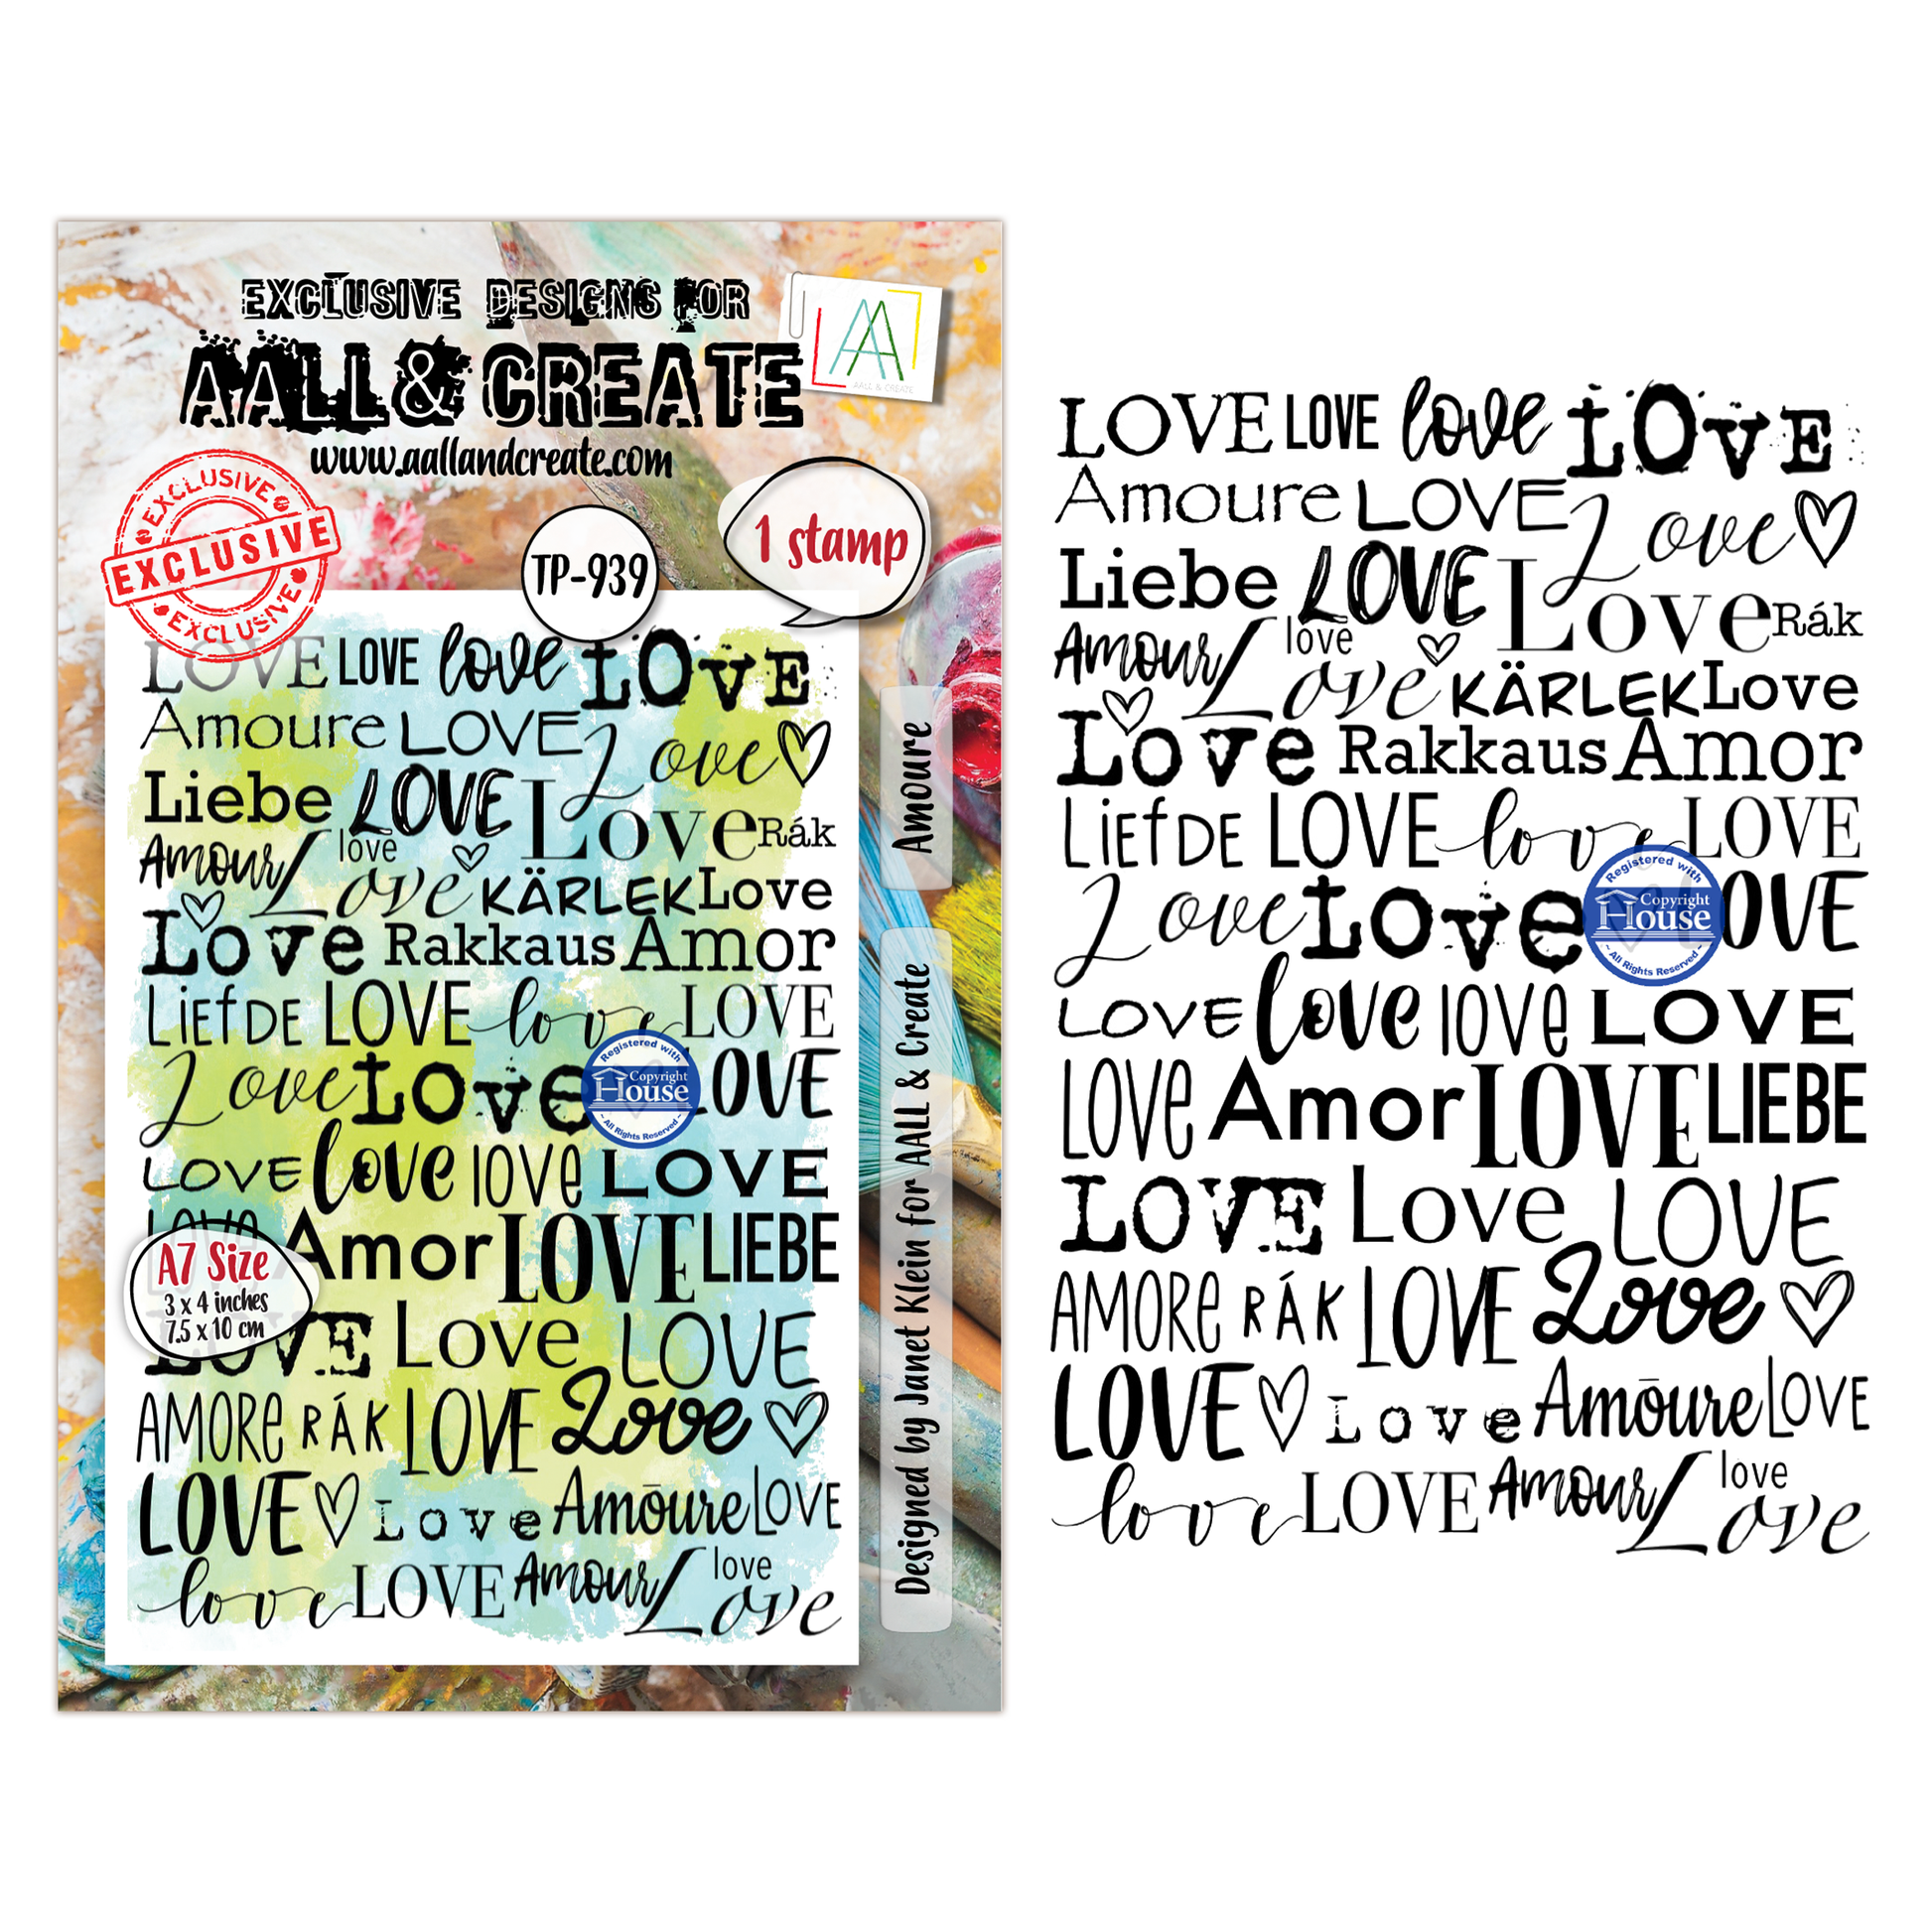 EXCLUSIVE DESIGNS FOR
AALL & CREATE
www.aallandcreate.com
AALL & CREATE
EXCLUSIVE
EXCLUSIVE
EXCLUSIVE
TP-939
1 stamp
LOVE LOVE love LOvE
Amoure LOVE Love
Liebe LOVE Love Rák
Amour Love love KÄRLEK Love
Love Rakkaus Amor
LiEfDE LOVE love LOVE
Love Love LOVE
Registered with
Copyright
House
- All Rights Reserved -
LOVE love lOVe LOVE
LOVe Amor LOVE LIEBE
A7 Size
3 x 4 inches
7.5 x 10 cm
LOVE Love LOVE
AMORe RÁK LOVE Love
LOVE Love Amōure LOVE
love LOVE Amour Love love
Amoure
Designed by Janet Klein for AALL & Create
LOVE LOVE love LOvE
Amoure LOVE Love
Liebe LOVE Love Rák
Amour Love love KÄRLEK Love
Love Rakkaus Amor
LiEfDE LOVE love LOVE
Love Love OVE
Registered with
Copyright
House
- All Rights Reserved -
LOVE love lOVe LOVE
LOVe Amor LOVE LIEBE
LOVE Love LOVE
AMORe RÁK LOVE Love
LOVE Love Amōure LOVE
love LOVE Amour Love love